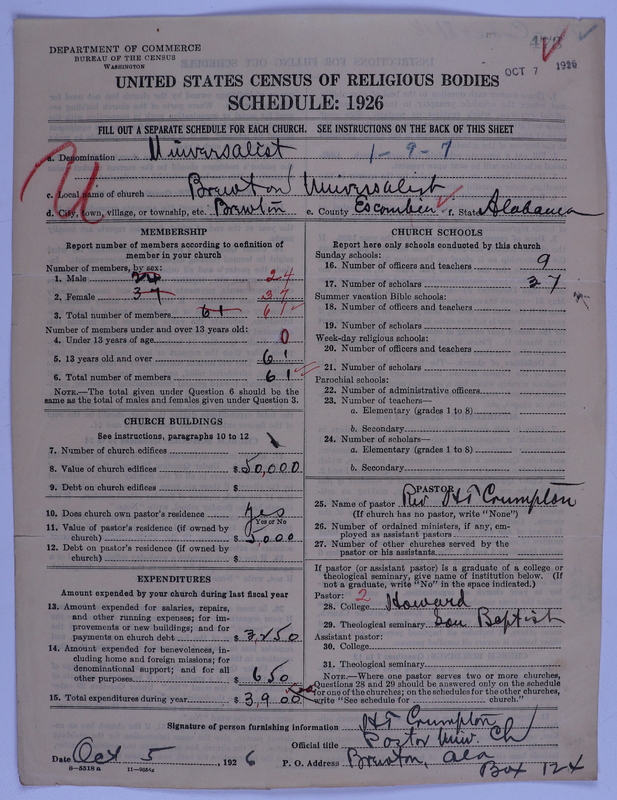 478
DEPARTMENT OF COMMERCE
BUREAU OF THE CENSUS
WASHINGTON
OCT 7 1926
UNITED STATES CENSUS OF RELIGIOUS BODIES
SCHEDULE: 1926
FILL OUT A SEPARATE SCHEDULE FOR EACH CHURCH. SEE INSTRUCTIONS ON THE BACK OF THIS SHEET
a. Denomination Universalist 1-9-7
c. Local name of church Brewton Universalist
d. City, town, village, or township, etc. Brewton e. County Escambia f. State Alabama
MEMBERSHIP
Report number of members according to definition of
member in your church
Number of members, by sex:
1. Male 24 24
2. Female 37 37
3. Total number of members 61 61
Number of members under and over 13 years old:
4. Under 13 years of age 0
5. 13 years old and over 61
6. Total number of members 61
NOTE.—The total given under Question 6 should be
same as the total of males and females given under Question 3.
CHURCH BUILDINGS
See instructions, paragraphs 10 to 12
7. Number of church edifices
8. Value of church edifices $50,000
9. Debt on church edifices $
10. Does church own pastor's residence Yes
Yes or No
11. Value of pastor's residence (if owned by
church) $5,000
12. Debt on pastor's residence (if owned by
church) $
EXPENDITURES
Amount expended by your church during last fiscal year
13. Amount expended for salaries, repairs,
and other running expenses; for im-
provements or new buildings; and for
payments on church debt $3,250
14. Amount expended for benevolences, in-
cluding home and foreign missions; for
denominational support; and for all
other purposes $650
15. Total expenditures during year $3,900
CHURCH SCHOOLS
Report here only schools conducted by this church
Sunday schools:
16. Number of officers and teachers 9
17. Number of scholars 37
Summer vacation Bible schools:
18. Number of officers and teachers
19. Number of scholars
Week-day religious schools:
20. Number of officers and teachers
21. Number of scholars
Parochial schools:
22. Number of administrative officers
23. Number of teachers—
a. Elementary (grades 1 to 8)
b. Secondary
24. Number of scholars—
a. Elementary (grades 1 to 8)
b. Secondary
PASTOR
25. Name of pastor Rev HT Crumpton
(If church has no pastor, write "None")
26. Number of ordained ministers, if any, em-
ployed as assistant pastors
27. Number of other churches served by the
pastor or his assistants
If pastor (or assistant pastor) is a graduate of a college or
theological seminary, give name of institution below. (If
not a graduate, write "No" in the space indicated.)
Pastor: 2
28. College Howard
29. Theological seminary Sou Baptist
Assistant pastor:
30. College
31. Theological seminary
NOTE.—Where one pastor serves two or more churches,
Questions 28 and 29 should be answered only on the schedule
for one of the churches; on the schedules for the other churches,
write "See schedule for church."
Signature of person furnishing information HT Crumpton
Official title Pastor Univ. Ch
Date Oct 5, 1926 P. O. Address Brewton, Ala
Box 124
8-5518a 11-9554